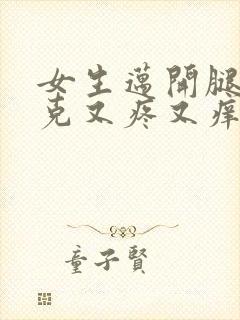 女生邁開腿
克又疼又癢
童子賢